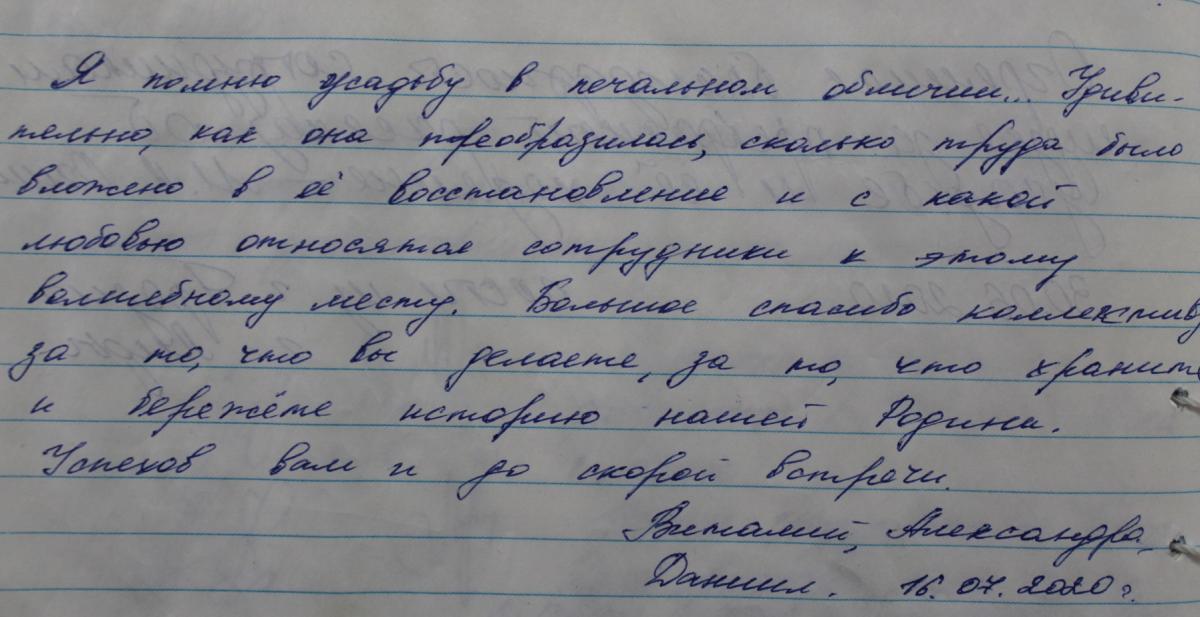 Я помню усадьбу в печальном обличии... Удиви-
тельно, как она преобразилась, сколько труда было
вложено в её восстановление и с какой
любовью относятся сотрудники к этому
волшебному месту. Большое спасибо коллектив
за то, что вы делаете, за то, что храните
и бережёте историю нашей Родины.
Успехов вам и до скорой встречи.
Виталий, Александра,
Даниил. 16.07.2020 г.